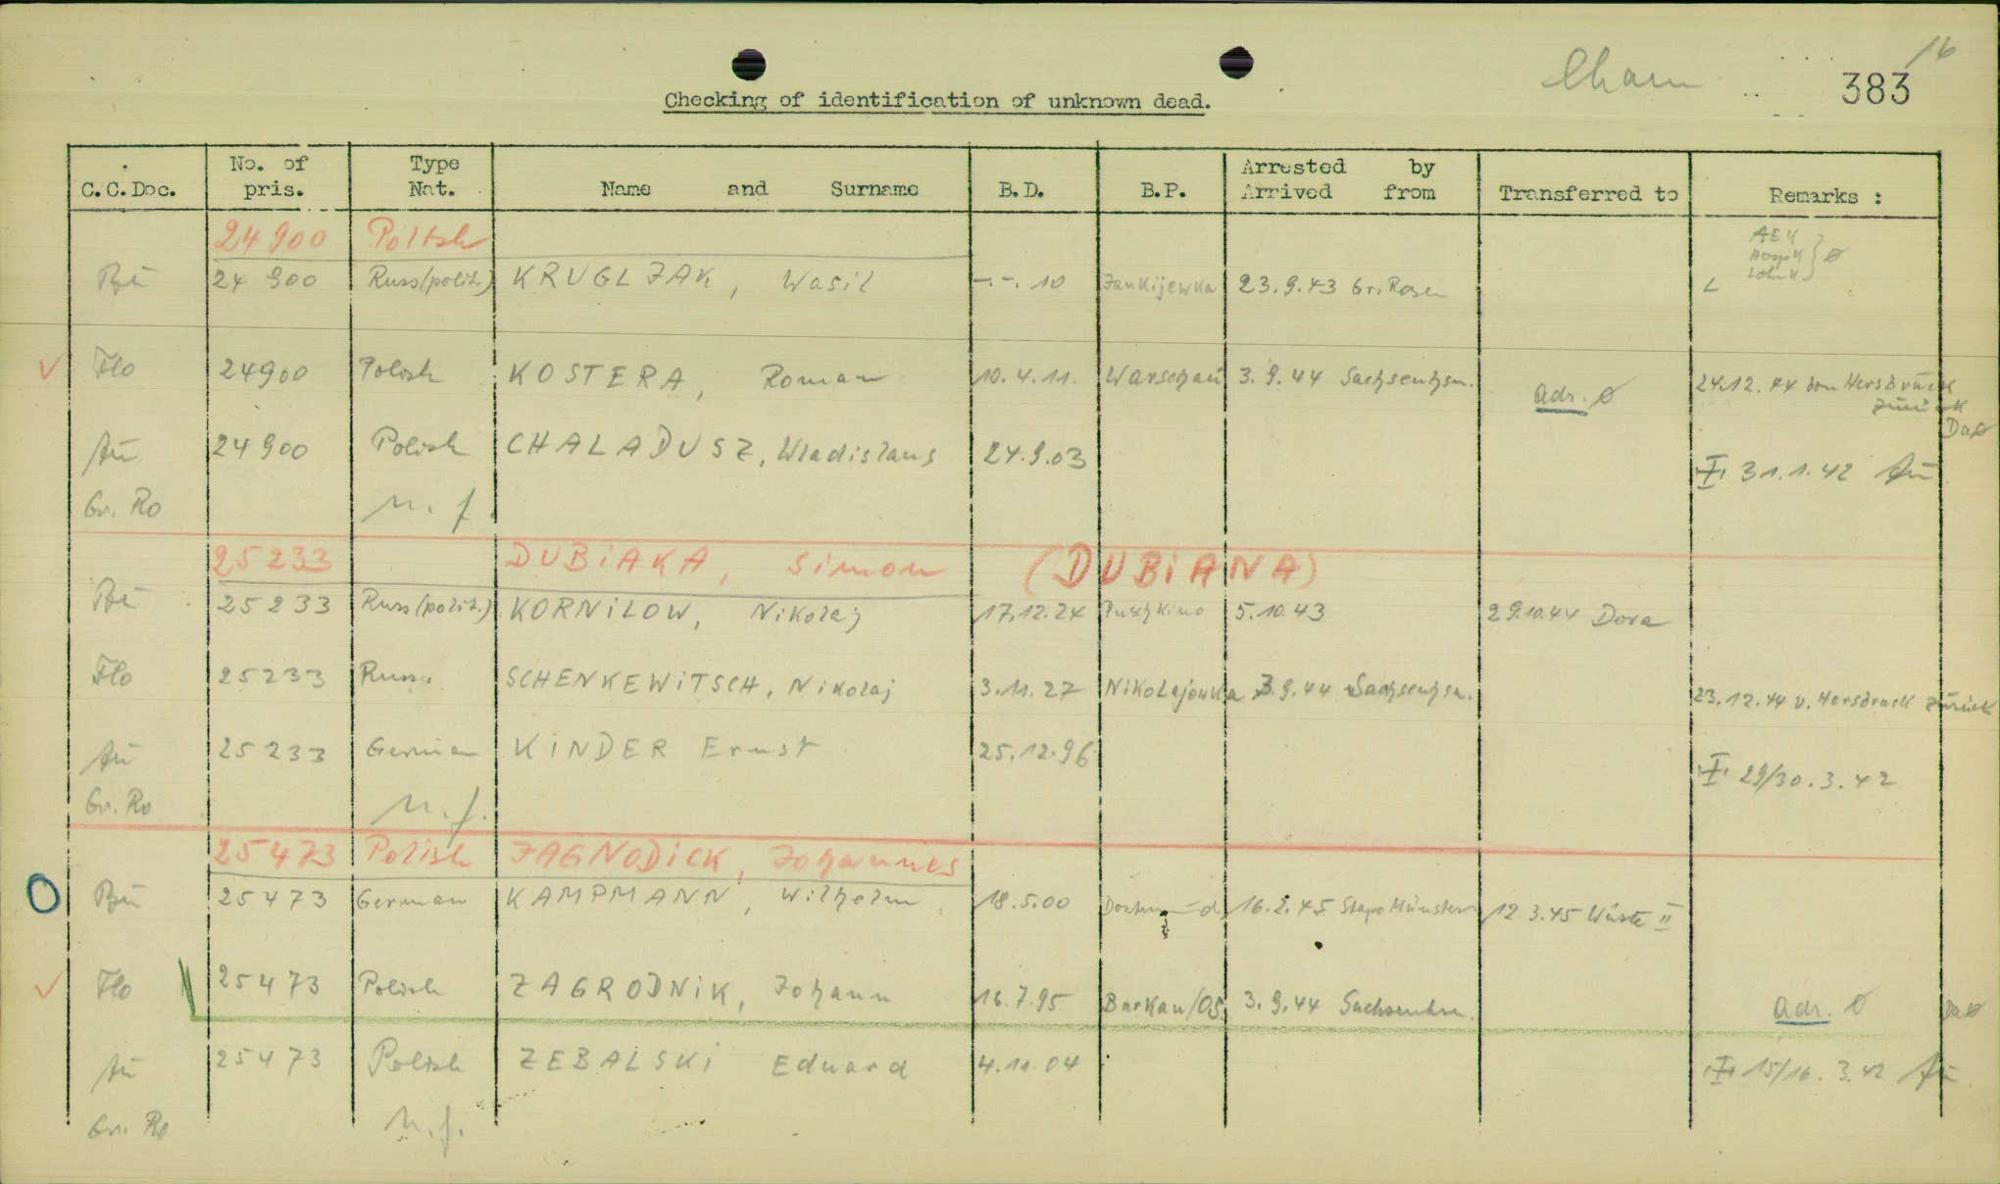 Cham 16
383
Checking of identification of unknown dead.
C.C.Doc. No. of pris. Type Nat. Name and Surname B.D. B.P. Arrested by Arrived from Transferred to Remarks :
24900 Polish
AEK
Hospk } ø
Bu 24 900 Russ(polit.) KRUGLJAK, Wasil -.-.10 Jankijewka 23.9.43 Gr. Rosen L
Flo 24900 Polish KOSTERA, Roman 10.4.11. Warschau 3.9.44 Sachsenhsn. adr. ø 24.12.44 von Hersbrück zurück
Au 24900 Polish CHALADUSZ, Wladislaus 24.9.03 31.1.42 Au
Gr. Ro n.f.
25233 DUBIAKA, Simon (DUBIANA)
Bu 25233 Russ(polit.) KORNiLOW, Nikolaj 17.12.24 Puschkino 5.10.43 29.10.44 Dora
Flo 25233 Russ. SCHENKEWiTSCH, Nikolaj 3.11.27 Nikolajowka 3.9.44 Sachsenhsn. 23.12.44 v. Hersbruck zurück
Au 25233 German KiNDER Ernst 25.12.96 29/30.3.42
Gr. Ro n.f.
25473 Polish JAGNODiCK, Johannes
Bu 25473 German KAMPMANN, Wilhelm 18.5.00 16.2.45 Stapo Münster 12.3.45 Wüste II
Flo 25473 Polish ZAGRODNiK, Johann 16.7.95 Barkau/OS. 3.9.44 Sachsenhsn. adr. ø
Au 25473 Polish ZEBALSKi Eduard 4.11.04 15/16.3.42 Au
Gr. Ro n.f.